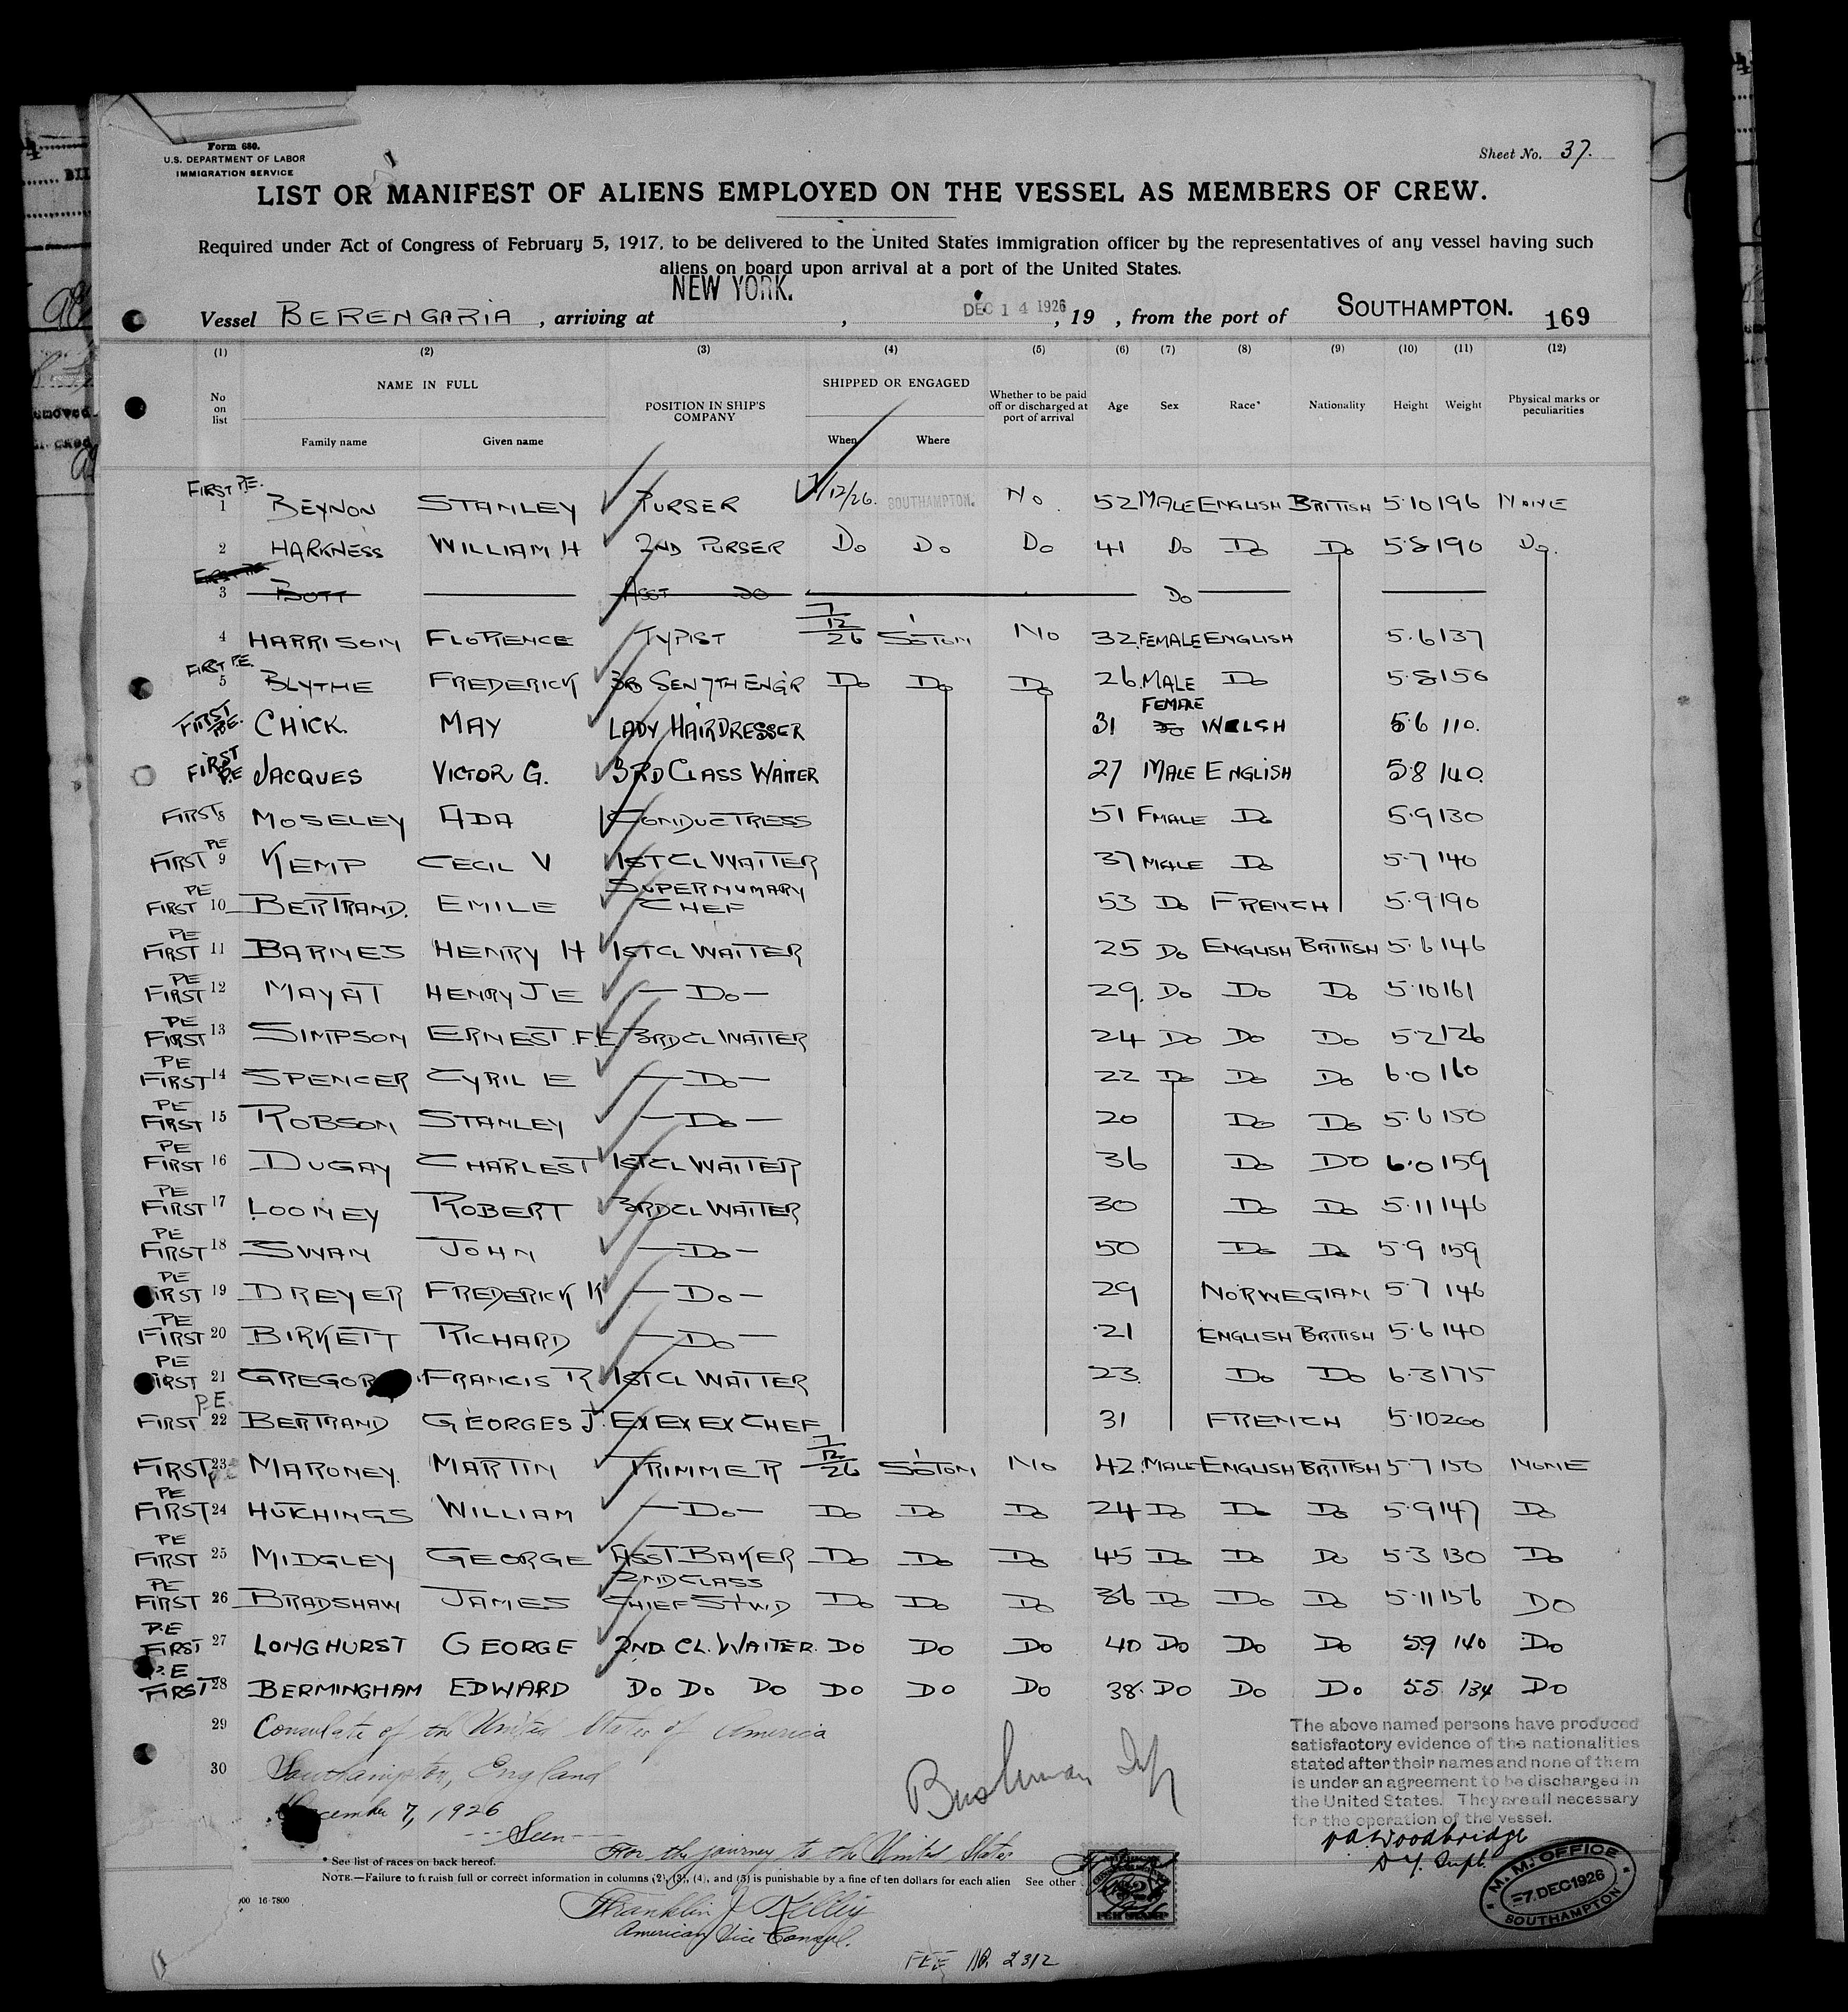 Form 680.
U.S. DEPARTMENT OF LABOR
IMMIGRATION SERVICE
Sheet No. 37.
LIST OR MANIFEST OF ALIENS EMPLOYED ON THE VESSEL AS MEMBERS OF CREW.
Required under Act of Congress of February 5, 1917, to be delivered to the United States immigration officer by the representatives of any vessel having such
aliens on board upon arrival at a port of the United States.
Vessel BERENGARIA, arriving at NEW YORK. , DEC 14 1926, 19 , from the port of SOUTHAMPTON. 169
(1) (2) (3) (4) (5) (6) (7) (8) (9) (10) (11) (12)
No on list NAME IN FULL Family name Given name POSITION IN SHIP'S COMPANY SHIPPED OR ENGAGED When Where Whether to be paid off or discharged at port of arrival Age Sex Race* Nationality Height Weight Physical marks or peculiarities
FIRST P.E. 1 BEYNON STANLEY PURSER 7/12/26. SOUTHAMPTON. No. 52 MALE ENGLISH BRITISH 5·10 196 NONE
2 HARKNESS WILLIAM H 2ND PURSER Do Do Do 41 Do Do Do 5·8 190 Do.
3 BOTT ASST DO Do
4 HARRISON FLORENCE TYPIST 7/12/26 S'TON No 32 FEMALE ENGLISH 5·6 137
FIRST P.E. 5 BLYTHE FREDERICK 3RD SEN 7TH ENGR Do Do Do 26 MALE Do 5·8 156
FIRST P.E. CHICK. MAY LADY HAIRDRESSER 31 FEMALE Do WELSH 5·6 110.
FIRST P.E JACQUES VICTOR G. 3RD CLASS WAITER 27 MALE ENGLISH 5·8 140.
FIRST 8 MOSELEY ADA CONDUCTRESS 51 FMALE Do 5·9 130
FIRST PE 9 KEMP CECIL V 1ST CL WAITER 37 MALE Do 5·7 140
PE FIRST 10 BERTRAND. EMILE SUPERNUMARY CHEF 53 Do FRENCH 5·9 190
PE FIRST 11 BARNES HENRY H 1ST CL WAITER 25 Do ENGLISH BRITISH 5·6 146
PE FIRST 12 MAYAT HENRY J E —Do— 29. Do Do Do 5·10 161
PE FIRST 13 SIMPSON ERNEST F.E 3RD CL WAITER 24 Do Do Do 5·2 126
PE FIRST 14 SPENCER CYRIL E —Do— 22 Do Do Do 6·0 160
PE FIRST 15 ROBSON STANLEY —Do— 20 Do Do 5·6 150
PE FIRST 16 DUGAY CHARLES T 1ST CL WAITER 36 Do DO 6·0 159
PE FIRST 17 LOONEY ROBERT 3RD CL WAITER 30 Do Do 5·11 146
PE FIRST 18 SWAN JOHN —Do— 50 Do Do 5·9 159
PE FIRST 19 DREYER FREDERICK K —Do— 29 NORWEGIAN 5·7 146
PE FIRST 20 BIRKETT RICHARD —Do— 21 ENGLISH BRITISH 5·6 140
PE FIRST 21 GREGOR FRANCIS R 1ST CL WAITER 23. Do Do 6·3 175
P.E. FIRST 22 BERTRAND GEORGES J. EX EX EX CHEF 31 FRENCH 5·10 200
FIRST 23 MARONEY. MARTIN TRIMMER 7/12/26 S'TON No 42. MALE ENGLISH BRITISH 5·7 150 NONE
PE FIRST 24 HUTCHINGS WILLIAM —Do— Do Do Do 24 Do Do Do 5·9 147 Do
PE FIRST 25 MIDGLEY GEORGE ASST BAKER Do Do Do 45 Do Do Do 5·3 130 Do
PE FIRST 26 BRADSHAW JAMES 2ND CLASS CHIEF STWD Do Do Do 36 Do Do Do 5·11 156 DO
P.E FIRST 27 LONGHURST GEORGE 2ND. CL. WAITER. DO DO DO 40 DO DO DO 5.9 140 DO
P.E FIRST 28 BERMINGHAM EDWARD DO DO DO DO DO DO 38. DO DO DO 5.5 134 DO
29 Consulate of the United States of America
30 Southampton, England
December 7, 1926
---Seen---
For the journey to the United States
The above named persons have produced
satisfactory evidence of the nationalities
stated after their names and none of them
is under an agreement to be discharged in
the United States. They are all necessary
for the operation of the vessel.
Woodbridge
Dy. Supt.
* See list of races on back hereof.
NOTE.—Failure to furnish full or correct information in columns (2), (3), (4), and (5) is punishable by a fine of ten dollars for each alien See other
16-7800
Franklin J. Kelley
American Vice Consul.
M.M. OFFICE
-7.DEC 1926
SOUTHAMPTON
FEE No. 2312